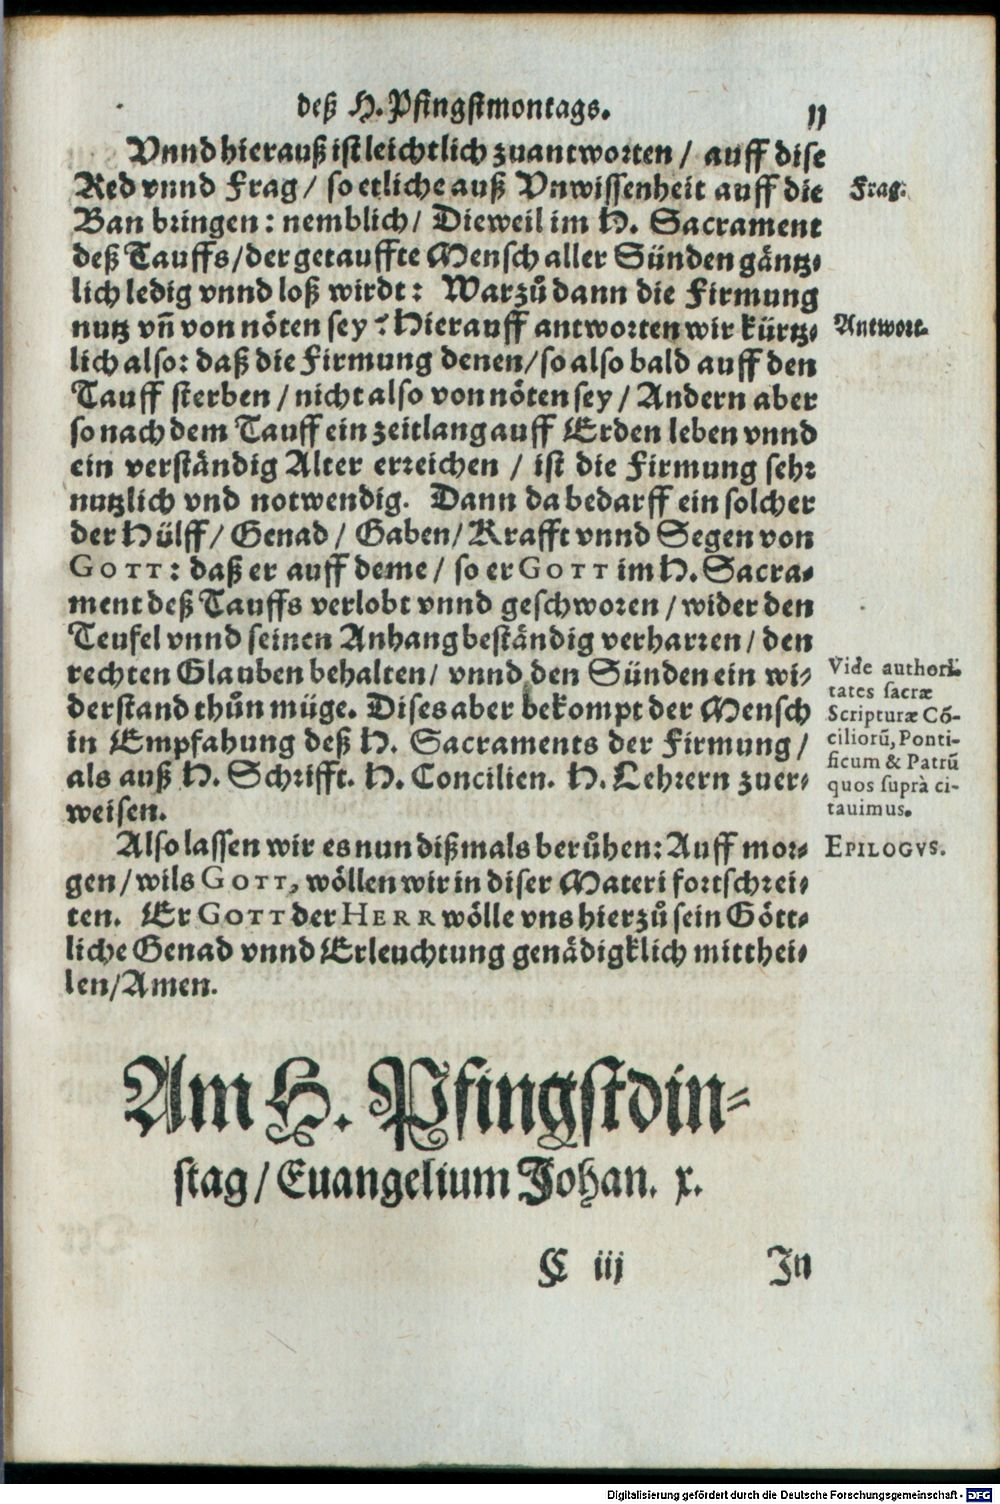 deß H. Pfingstmontags. 11
Vnnd hierauß ist leichtlich zuantworten / auff dise
Red vnnd Frag / so etliche auß Vnwissenheit auff die
Frag.
Ban bringen: nemblich / Dieweil im H. Sacrament
deß Tauffs / der getauffte Mensch aller Sünden gäntz-
lich ledig vnnd loß wirdt: Warzů dann die Firmung
nutz vñ von nöten sey? Hierauff antworten wir kürtz-
Antwort.
lich also: daß die Firmung denen / so also bald auff den
Tauff sterben / nicht also von nöten sey / Andern aber
so nach dem Tauff ein zeitlang auff Erden leben vnnd
ein verständig Alter erreichen / ist die Firmung sehr
nutzlich vnd notwendig. Dann da bedarff ein solcher
der Hülff / Genad / Gaben / Krafft vnnd Segen von
GOTT: daß er auff deme / so er GOTT im H. Sacra-
ment deß Tauffs verlobt vnnd geschworen / wider den
Teufel vnnd seinen Anhang beständig verharren / den
rechten Glauben behalten / vnnd den Sünden ein wi-
derstand thůn müge. Dises aber bekompt der Mensch
in Empfahung deß H. Sacraments der Firmung /
als auß H. Schrifft. H. Concilien. H. Lehrern zuer-
weisen.
Vide authori-
tates sacræ
Scripturæ Cõ-
ciliorũ, Ponti-
ficum & Patrũ
quos suprà ci-
tauimus.
Also lassen wir es nun dißmals berůhen: Auff mor-
EPILOGVS.
gen / wils GOTT, wöllen wir in diser Materi fortschrei-
ten. Er GOTT der HERR wölle vns hierzů sein Gött-
liche Genad vnnd Erleuchtung genädigklich mitthei-
len / Amen.
Am H. Pfingstdin-
stag / Euangelium Johan. x.
C iij In
Digitalisierung gefördert durch die Deutsche Forschungsgemeinschaft - DFG